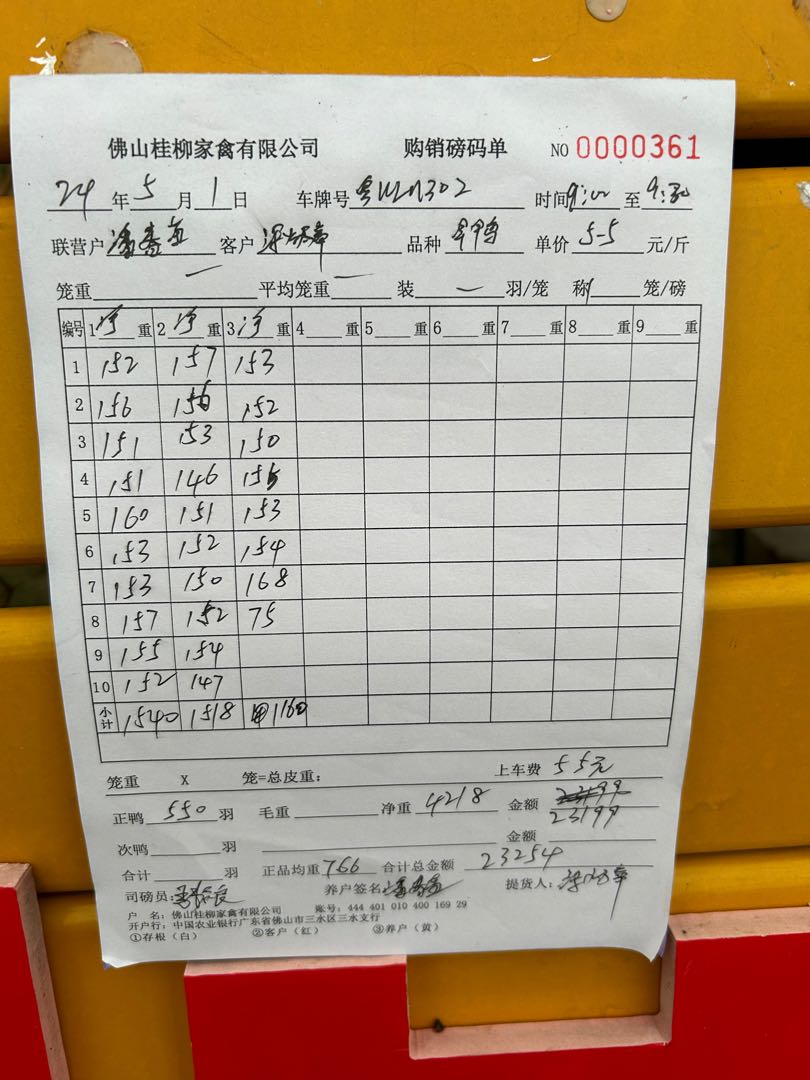 佛山桂柳家禽有限公司 购销磅码单 NO 0000361
24 年 5 月 1 日 车牌号 时间 9:00 至 9:30
联营户 客户 品种 单价 5-5 元/斤
笼重 一 平均笼重 一 装 一 羽/笼 称 / 笼/磅
编号 1 净 重 2 净 重 3 净 重 4 重 5 重 6 重 7 重 8 重 9 重
1 152 157 153
2 156 156 152
3 151 153 150
4 151 146 155
5 160 151 153
6 153 152 154
7 153 150 168
8 157 152 75
9 155 154
10 152 147
小计 1540 1518 1160
笼重 X 笼=总皮重: 上车费 55元
正鸭 550 羽 毛重 净重 4218 金额 23199
次鸭 羽 金额
合计 羽 正品均重 766 合计总金额 23254
司磅员: 养户签名 提货人:
户 名: 佛山桂柳家禽有限公司 账号: 444 401 010 400 169 29
开户行: 中国农业银行广东省佛山市三水区三水支行
①存根（白） ②客户（红） ③养户（黄）